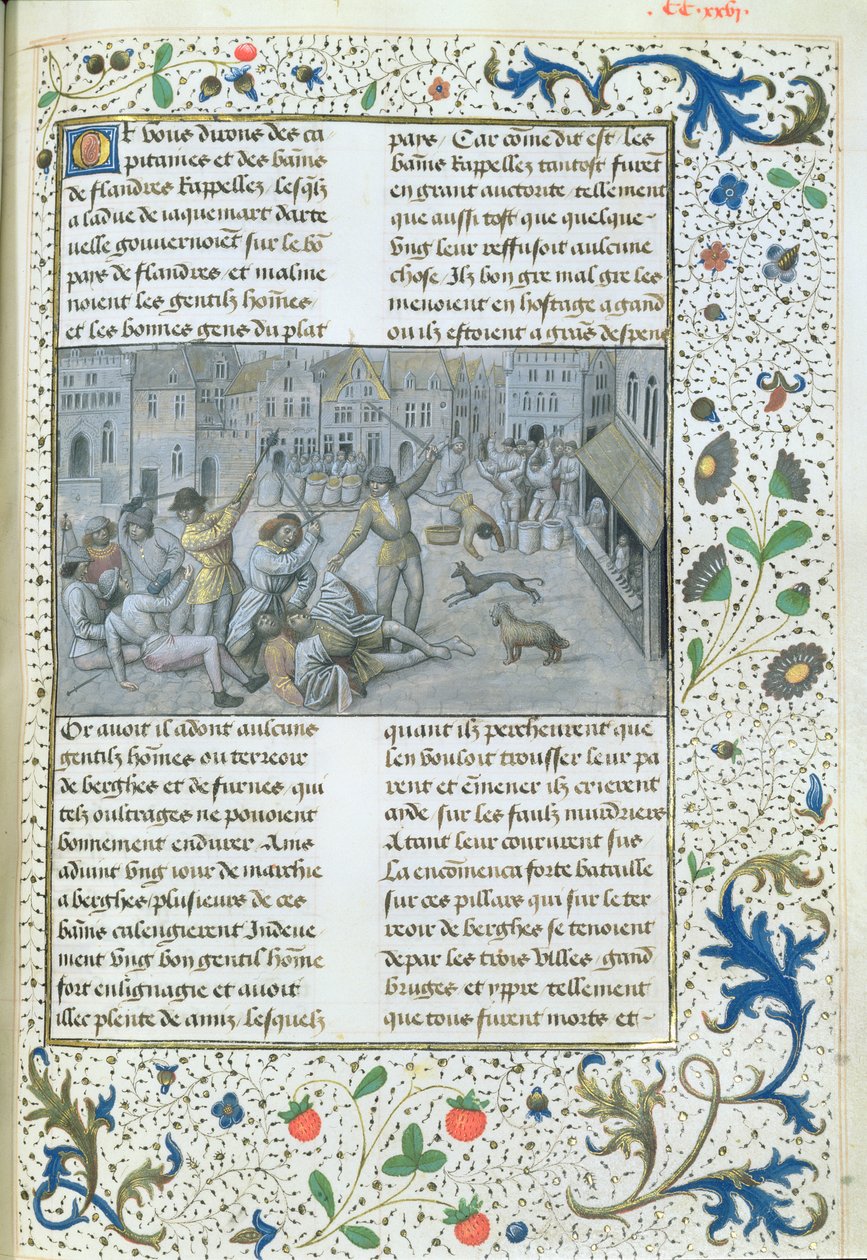 .CC.xxvi.
Or vous dirons des ca
pitaines et des bam̄s
de flandres Rappellez / lesqlz
a ladue de iaquemart darte
uelle gouuernoiēt sur le bō
pays de flandres / et malme
noient les gentilz hom̄es /
et les bonnes gens du plat
pays / Car cōme dit est / les
bam̄s Rappellez tantost furēt
en grant auctorite / tellement
que aussi tost que quelque-
vng leur reffusoit aulcune
chose / Ilz bon gre mal gre les
menoient en hostage a gand
ou ilz estoient a grās despens
Or auoit il adont aulcuns
gentilz hom̄es ou terreoir
de berghes et de furnes / qui
telz oultrages ne pouoient
bonnement endurer / Ains
aduint vng iour de marchie
a berghes / plusieurs de ces
bam̄s calengierent Indeue-
ment vng bon gentil hom̄e
fort enlignagie et auoit
illec plente de amiz / lesquelz
quant ilz percheurent que
len vouloit trousser leur pa
rent et ēmener ilz crierent
aide / sur les faulz murdriers
Atant leur coururent sus /
La encōmenca forte bataille
sur ces pillars qui sur le ter-
reoir de berghes se tenoient
depar les trois villes / gand
Bruges et yppre / tellement
que tous furent morts et-